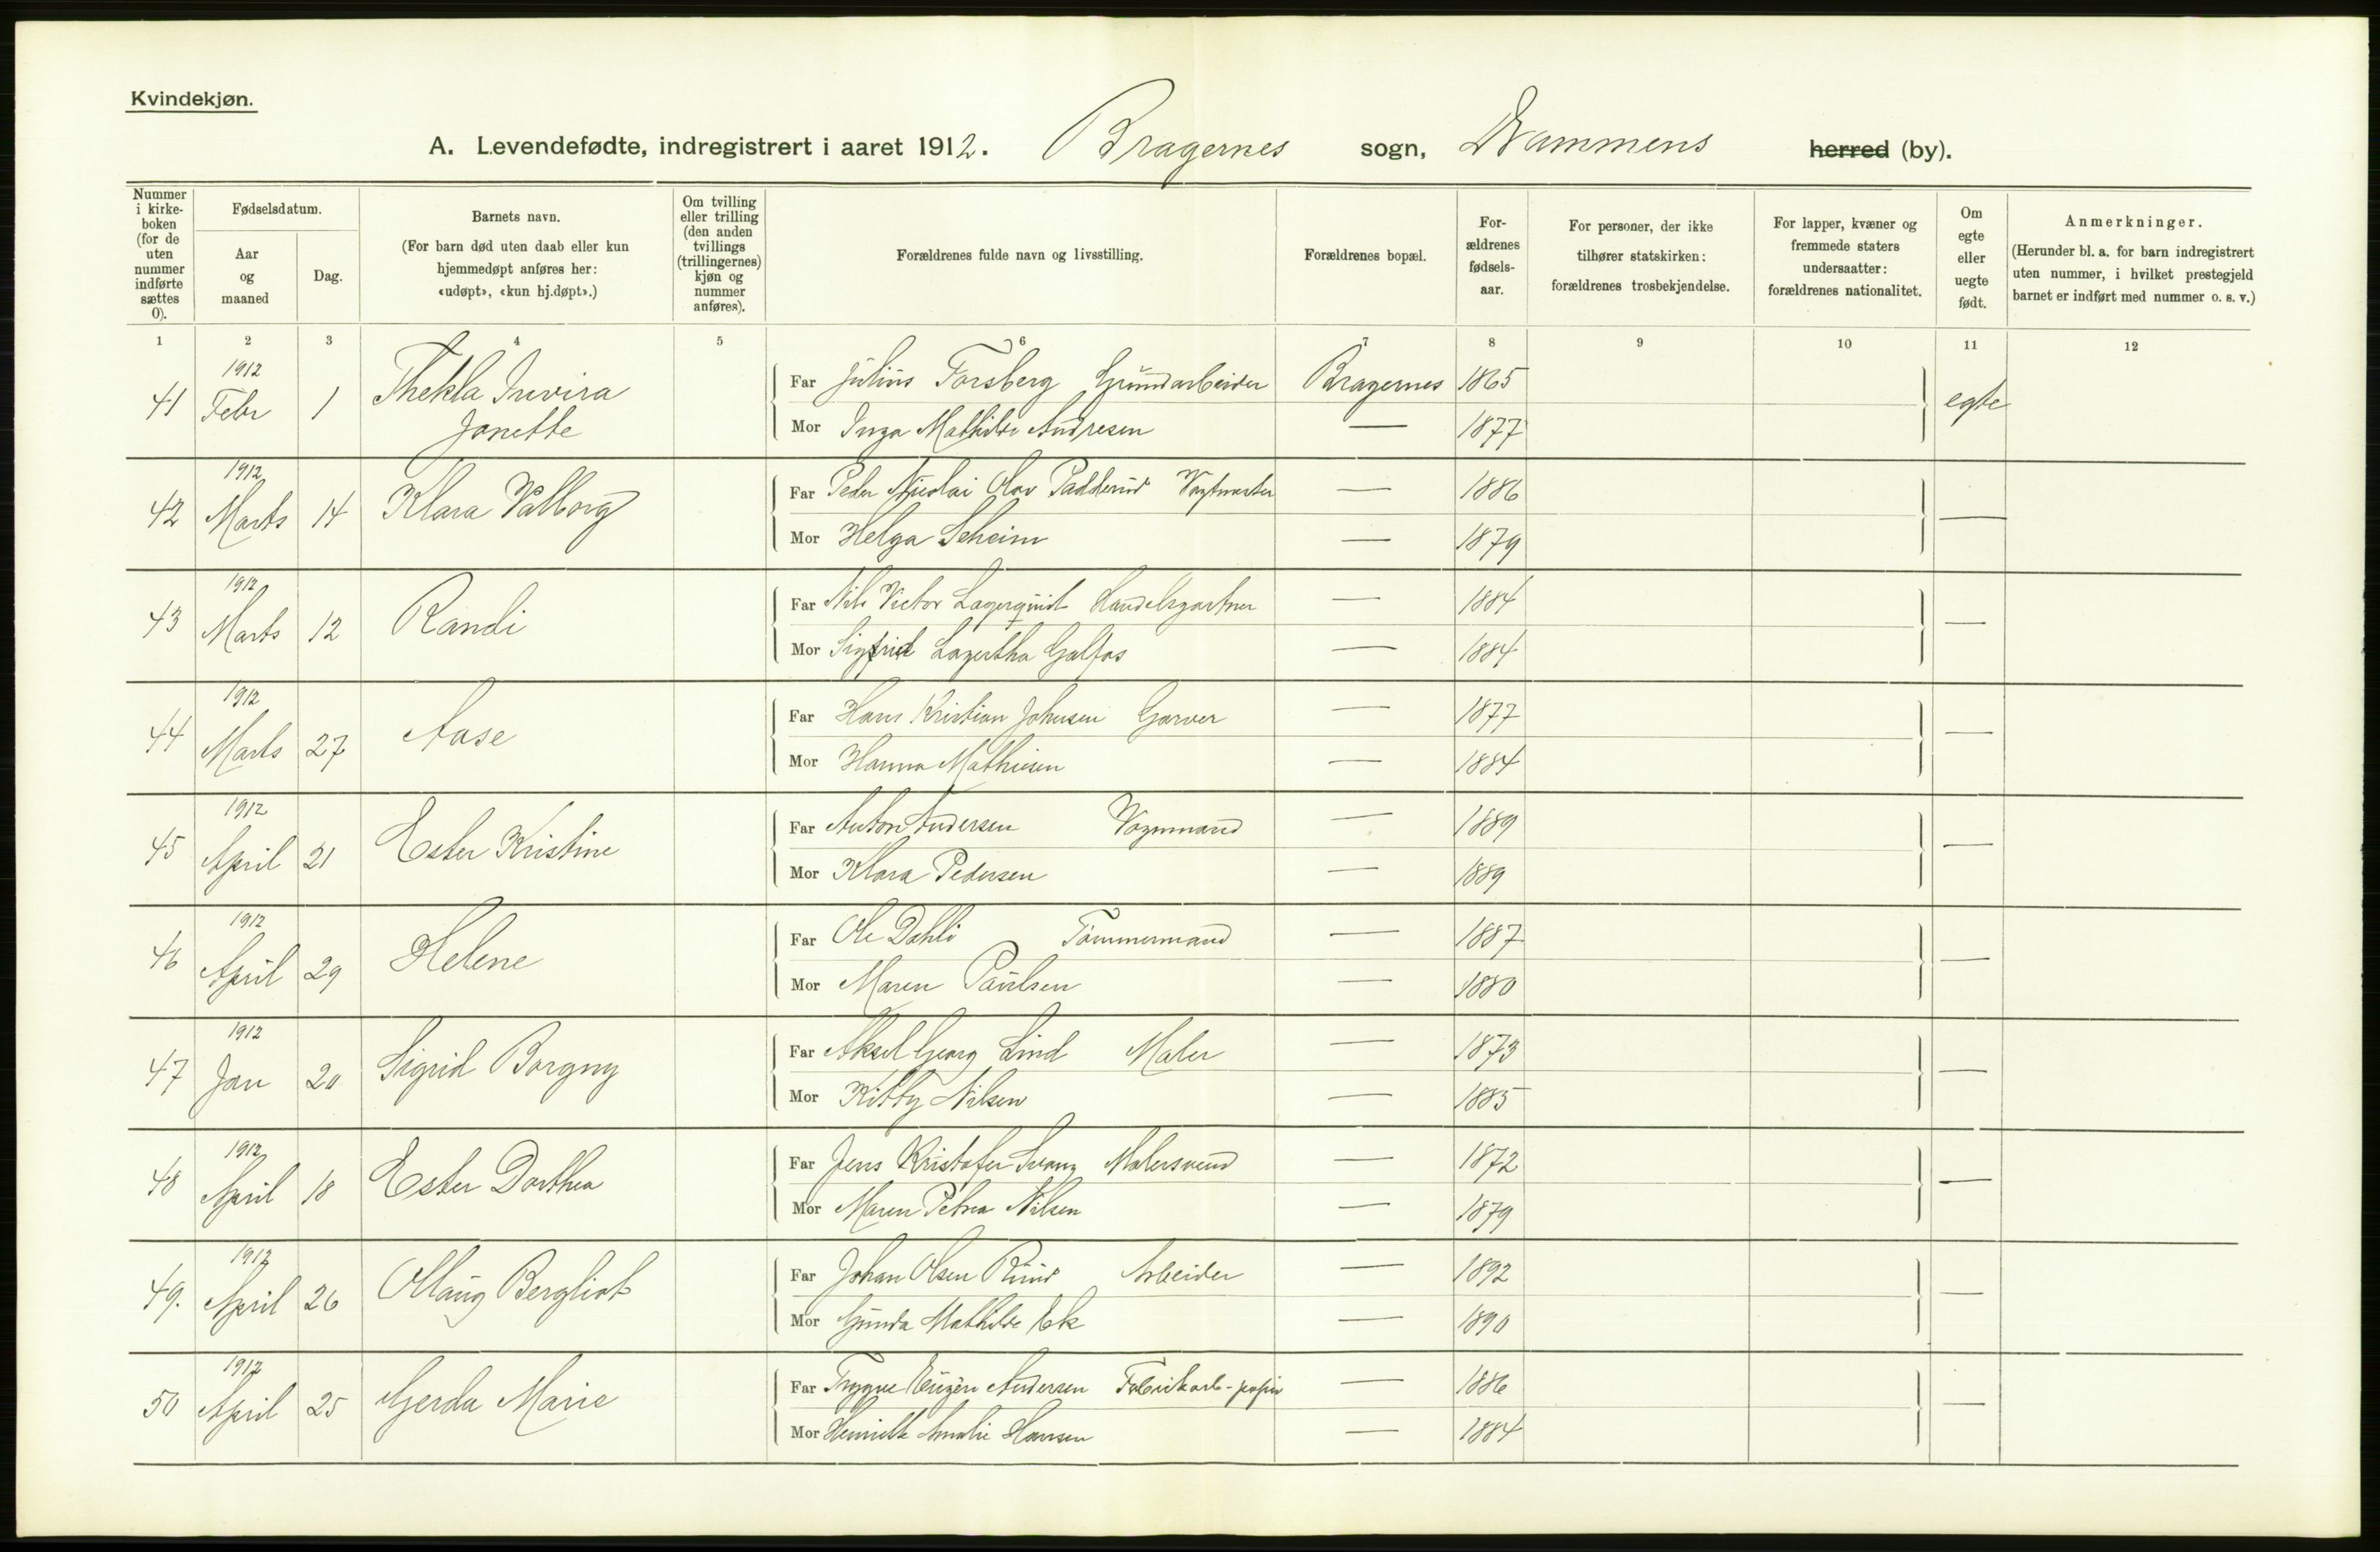 Kvindekjøn.
A. Levendefødte, indregistrert i aaret 1912. Bragernes sogn, Drammens herred (by).
Nummer i kirke-boken (for de uten nummer indførte sættes 0).
Fødselsdatum.
Aar og maaned
Dag.
Barnets navn.
(For barn død uten daab eller kun hjemmedøpt anføres her: «udøpt», «kun hj.døpt».)
Om tvilling eller trilling (den anden tvillings (trillingernes) kjøn og nummer anføres).
Forældrenes fulde navn og livsstilling.
Forældrenes bopæl.
For-ældrenes fødsels-aar.
For personer, der ikke tilhører statskirken: forældrenes trosbekjendelse.
For lapper, kvæner og fremmede staters undersaatter: forældrenes nationalitet.
Om egte eller uegte født.
Anmerkninger.
(Herunder bl. a. for barn indregistrert uten nummer, i hvilket prestegjeld barnet er indført med nummer o. s. v.)
1 2 3 4 5 6 7 8 9 10 11 12
1912
41 Febr 1 Thekla
Janette
Far Julius Forsberg Grundarbeider Bragernes 1865
egte
Mor Inga Mathilde Andresen — 1877
1912
42 Marts 14 Klara Valborg
Far Peder Nicolai Olav — 1886
—
Mor Helga — 1879
1912
43 Marts 12 Randi
Far Nils Victor Lagerquist Handelsgartner — 1884
—
Mor Sigfrid Lagertha — 1884
1912
44 Marts 27 Aase
Far Hans Kristian Johnsen Garver — 1877
—
Mor Hanna Mathiesen — 1884
1912
45 April 21 Ester Kristine
Far Anton Andersen Vognmand — 1889
—
Mor Klara Pedersen — 1889
1912
46 April 29 Helene
Far Ole Dahli Tømmermand — 1887
—
Mor Maren Paulsen — 1880
1912
47 Jan 20 Sigrid Borgny
Far Aksel Georg Lind Maler — 1873
—
Mor Kitty Nilsen — 1885
1912
48 April 18 Ester Dorthea
Far Jens Kristofer Svang Malersvend — 1872
—
Mor Maren Petrea Nilsen — 1879
1912
49. April 26 Ollaug Bergliot
Far Johan Olsen Ruud Arbeider — 1892
—
Mor Gunda Mathilde Ek — 1890
1912
50 April 25 Gerda Marie
Far Trygve Eugen Andersen Fabrikarb-papir — 1886
—
Mor Henriette Amalie Hansen — 1884